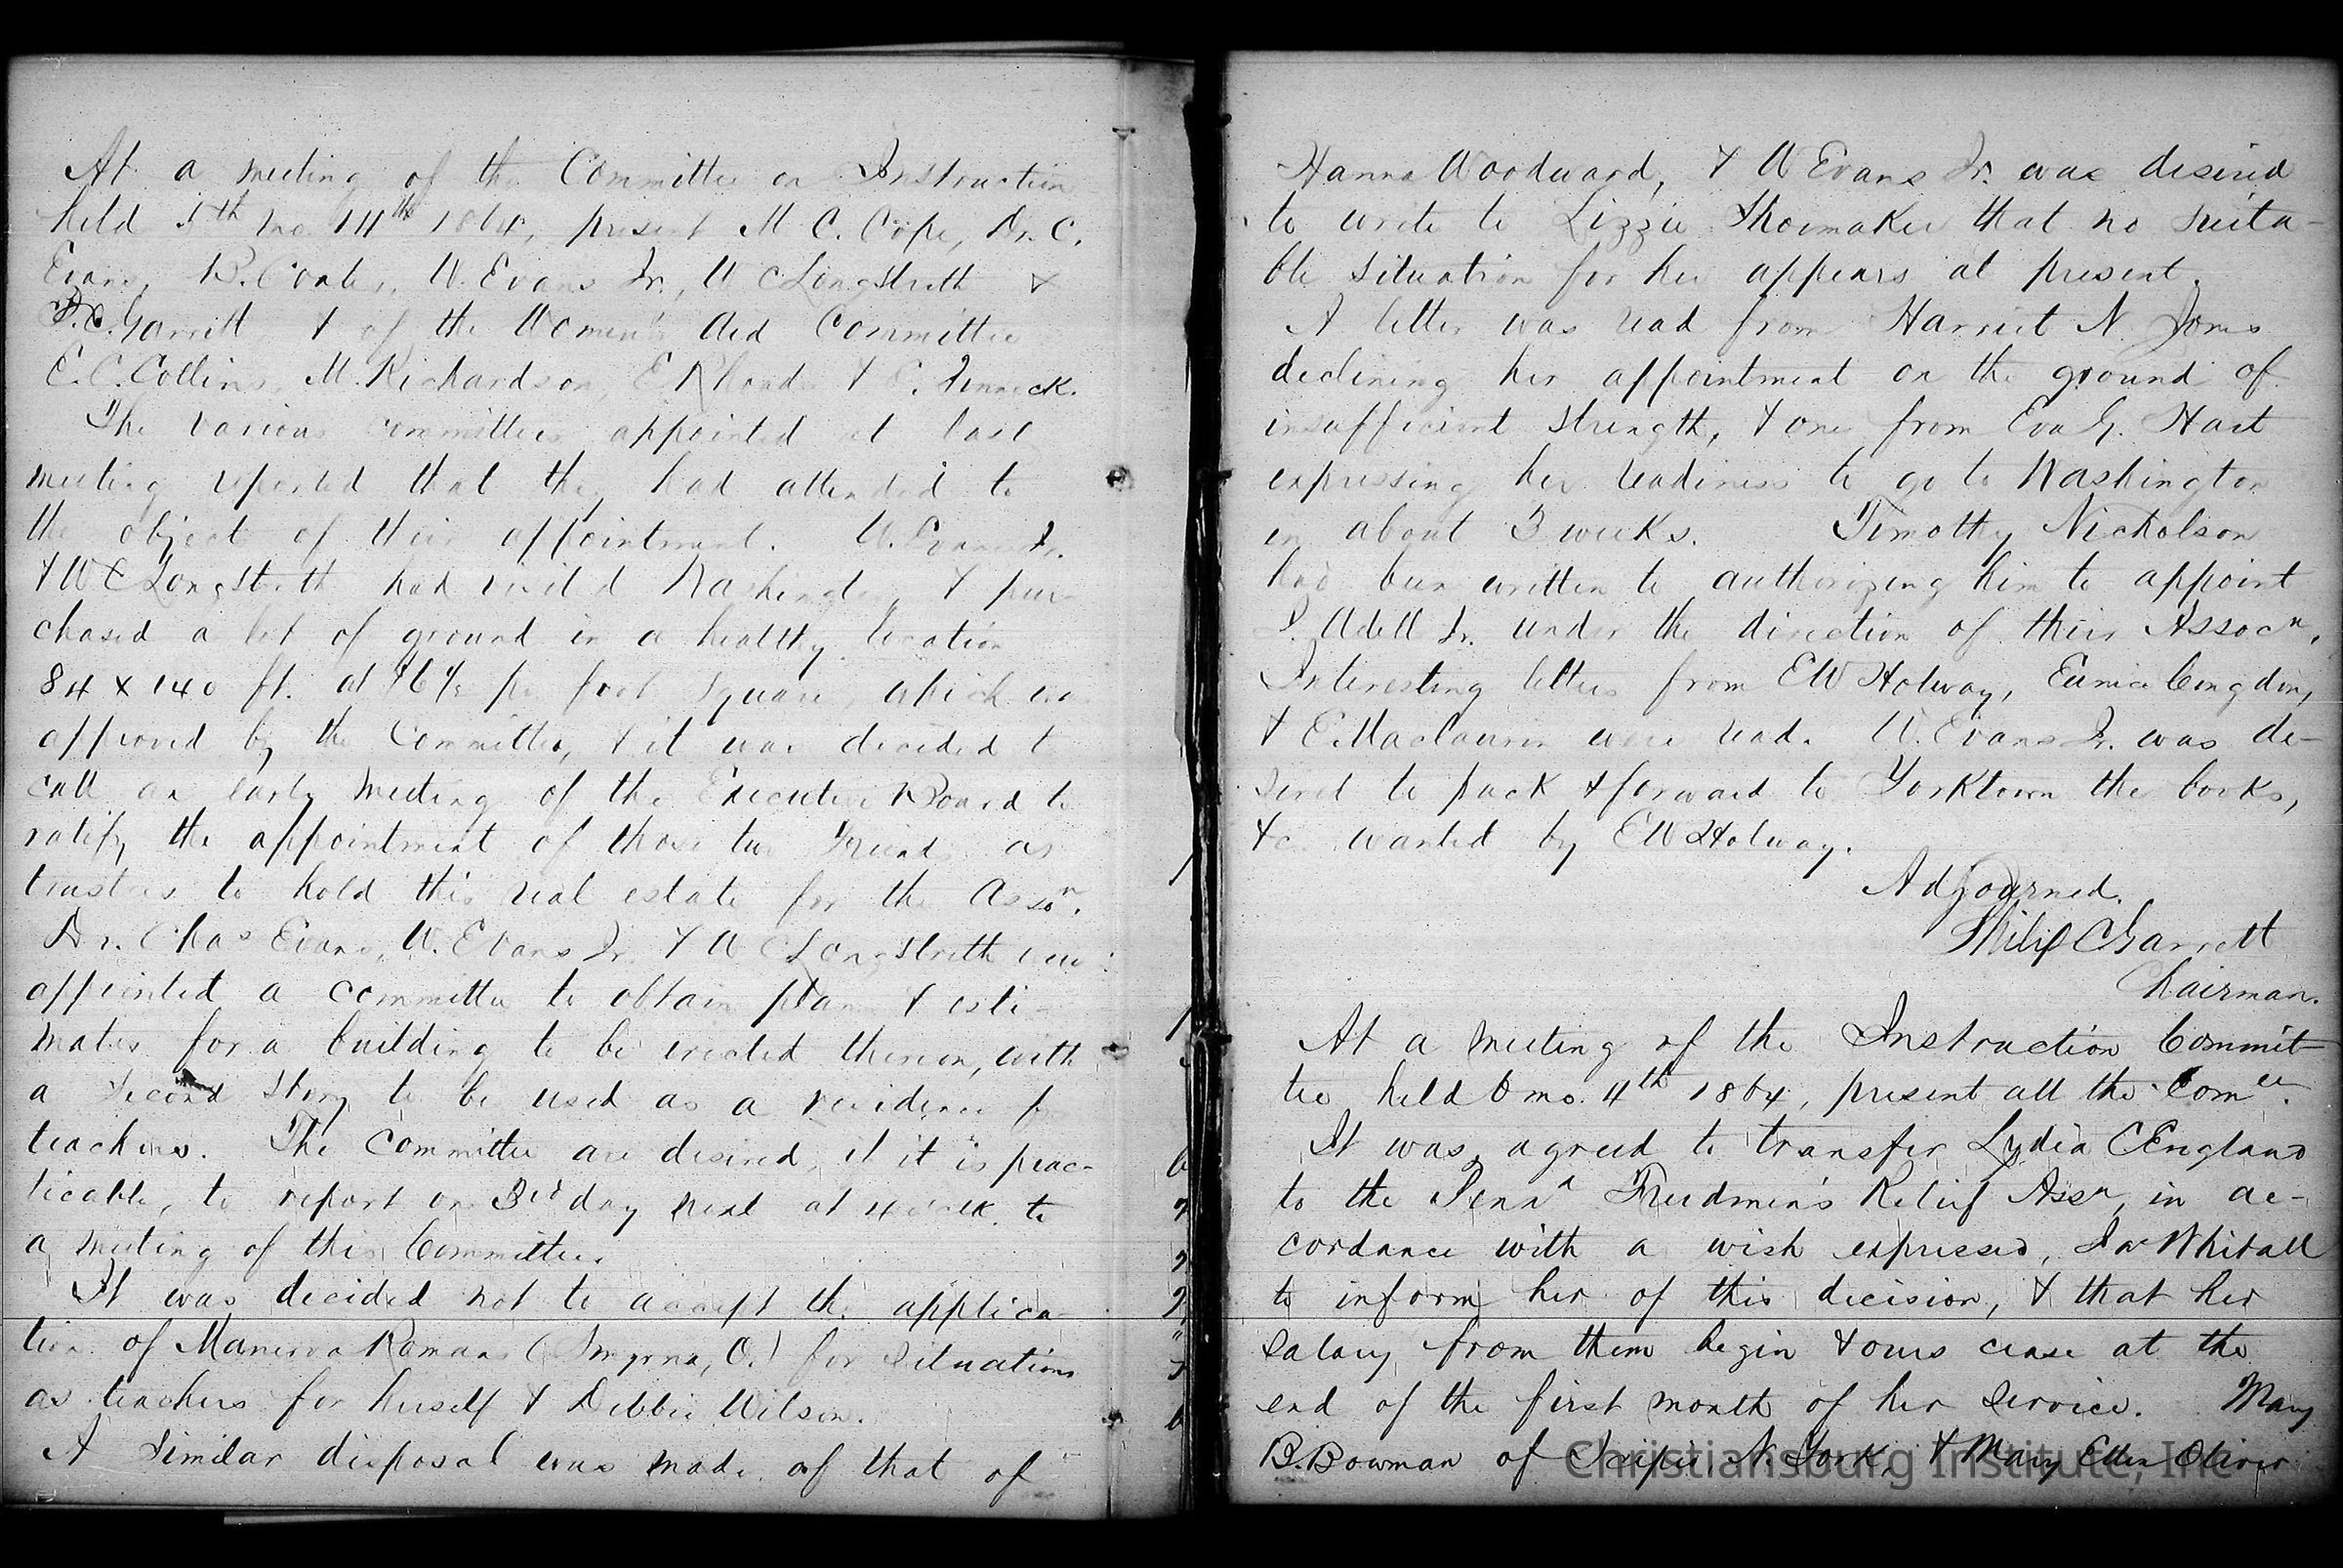 At a meeting of the Committee on Instruction
held 5th mo. 14th 1864, present M. C. Cope, Dr. C.
Evans, B. Coates, W. Evans Jr., W C Longstreth &
P. C. Garrett & of the Women's Aid Committee
E. C. Collins, M. Richardson, E Rhoads &
The various committees appointed at last
meeting reported that they had attended to
the object of their appointment. W. Evans Jr.
& W C Longstreth had visited Washington & pur-
chased a lot of ground in a healthy location
84 x 140 ft. at per foot square, which was
approved by the Committee, & it was decided to
call an early meeting of the Executive Board to
ratify the appointment of those two Friends as
trustees to hold this real estate for the Asson.
Dr. Chas Evans, W. Evans Jr. & W C Longstreth were
appointed a committee to obtain plans & esti-
mates for a building to be erected thereon, with
a second story to be used as a residence for
teachers. The Committee are desired, if it is prac-
ticable, to report on 3rd day next at 4 o'clk. to
a meeting of this Committee.
It was decided not to accept the applica-
tion of Manerva Romans (Smyrna, O.) for situations
as teachers for herself & Debbie Wilson.
A similar disposal was made of that of
Hanna Woodward, & W Evans Jr. was desired
to write to Lizzie Shoemaker that no suita-
ble situation for her appears at present.
A letter was read from Harriet N. Jones
declining her appointment on the ground of
insufficient strength, & one from Eva G. Hart
expressing her readiness to go to Washington
in about 3 weeks. Timothy Nicholson
had been written to authorizing him to appoint
Udell Jr. under the direction of their Assocn.
Interesting letters from E W Holway, Eunice Congdon,
& E. Maclaurin were read. W. Evans Jr. was de-
sired to pack & forward to Yorktown the books,
&c. wanted by E W Holway.
Adjourned.
Philip C Garrett
Chairman.
At a meeting of the Instruction Commit-
tee held 6 mo. 4th 1864, present all the Comee.
It was agreed to transfer Lydia C England
to the Penna Freedmen's Relief Assn, in ac-
cordance with a wish expressed, Whitall
to inform her of this decision, & that her
salary from them begin & ours cease at the
end of the first month of her service. Mary
B. Bowman of Scipio N. York, & Mary Ellen Oliver
Christiansburg Institute, Inc